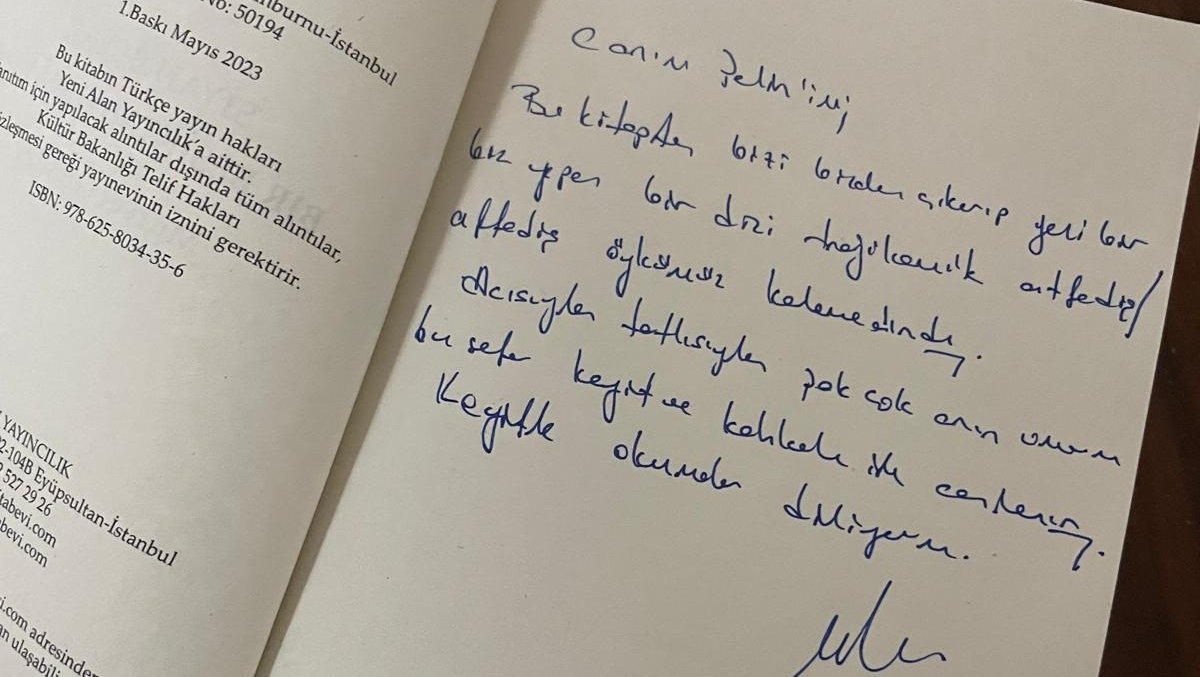 nburnu-İstanbul
No: 50194
1.Baskı Mayıs 2023
Bu kitabın Türkçe yayın hakları
Yeni Alan Yayıncılık'a aittir.
anıtım için yapılacak alıntılar dışında tüm alıntılar,
Kültür Bakanlığı Telif Hakları
özleşmesi gereği yayınevinin iznini gerektirir.
ISBN: 978-625-8034-35-6
YAYINCILIK
02-104B Eyüpsultan-İstanbul
2 527 29 26
tabevi.com
bevi.com
i.com adresinden
an ulaşabili
Canım
Bu kitapta bizi bizden çıkarıp yeni bir
biz yapan bir dizi trajikomik affediş/
affediş öykümüz kaleme alındı.
Acısıyla tatlısıyla pek çok anın umarım
bu sefer keyif ve kahkaha ile canlanır.
Keyifle okumanı diliyorum.